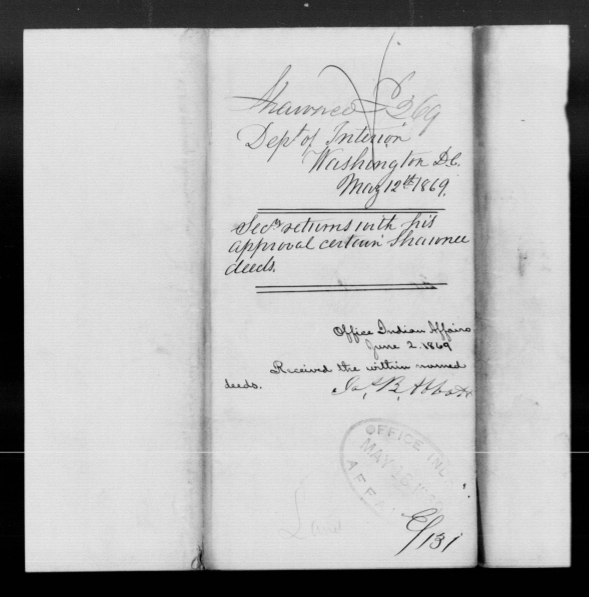 Shawnee I 269
Dept of Interior
Washington D.C.
May 12th 1869.
Secy returns with his
approval certain Shawnee
deeds.
Office Indian Affairs
June 2. 1869
Received the within named
deeds.
Jas. B. Abbott
OFFICE IND
MAY
AFFA
Land
C/131